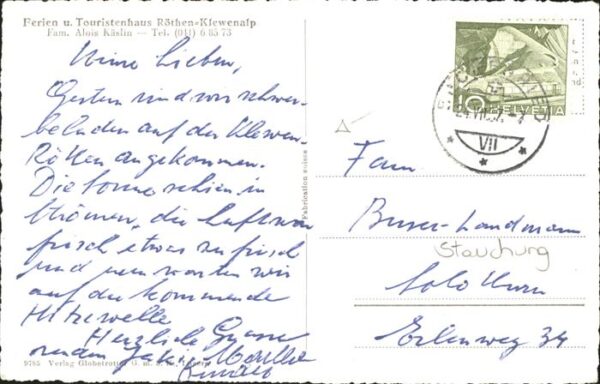 Ferien u. Touristenhaus Röthen-Klewenalp
Fam. Alois Käslin — Tel. (041) 6 85 73
Meine Lieben,
Gestern sind wir schwer-
beladen auf der Klewen
Röten angekommen.
Die Sonne schien in
Strömen, die Luft war
frisch etwas zu frisch
und nun warten wir
auf die kommende
Hitzewelle
Herzliche Grüsse
9785 Verlag Globetrotter G. m. b. H.
Fabrication suisse
10 HELVETIA
VII
Fam
Buser-Landmann
Stauchung
Solothurn
Erlenweg 34